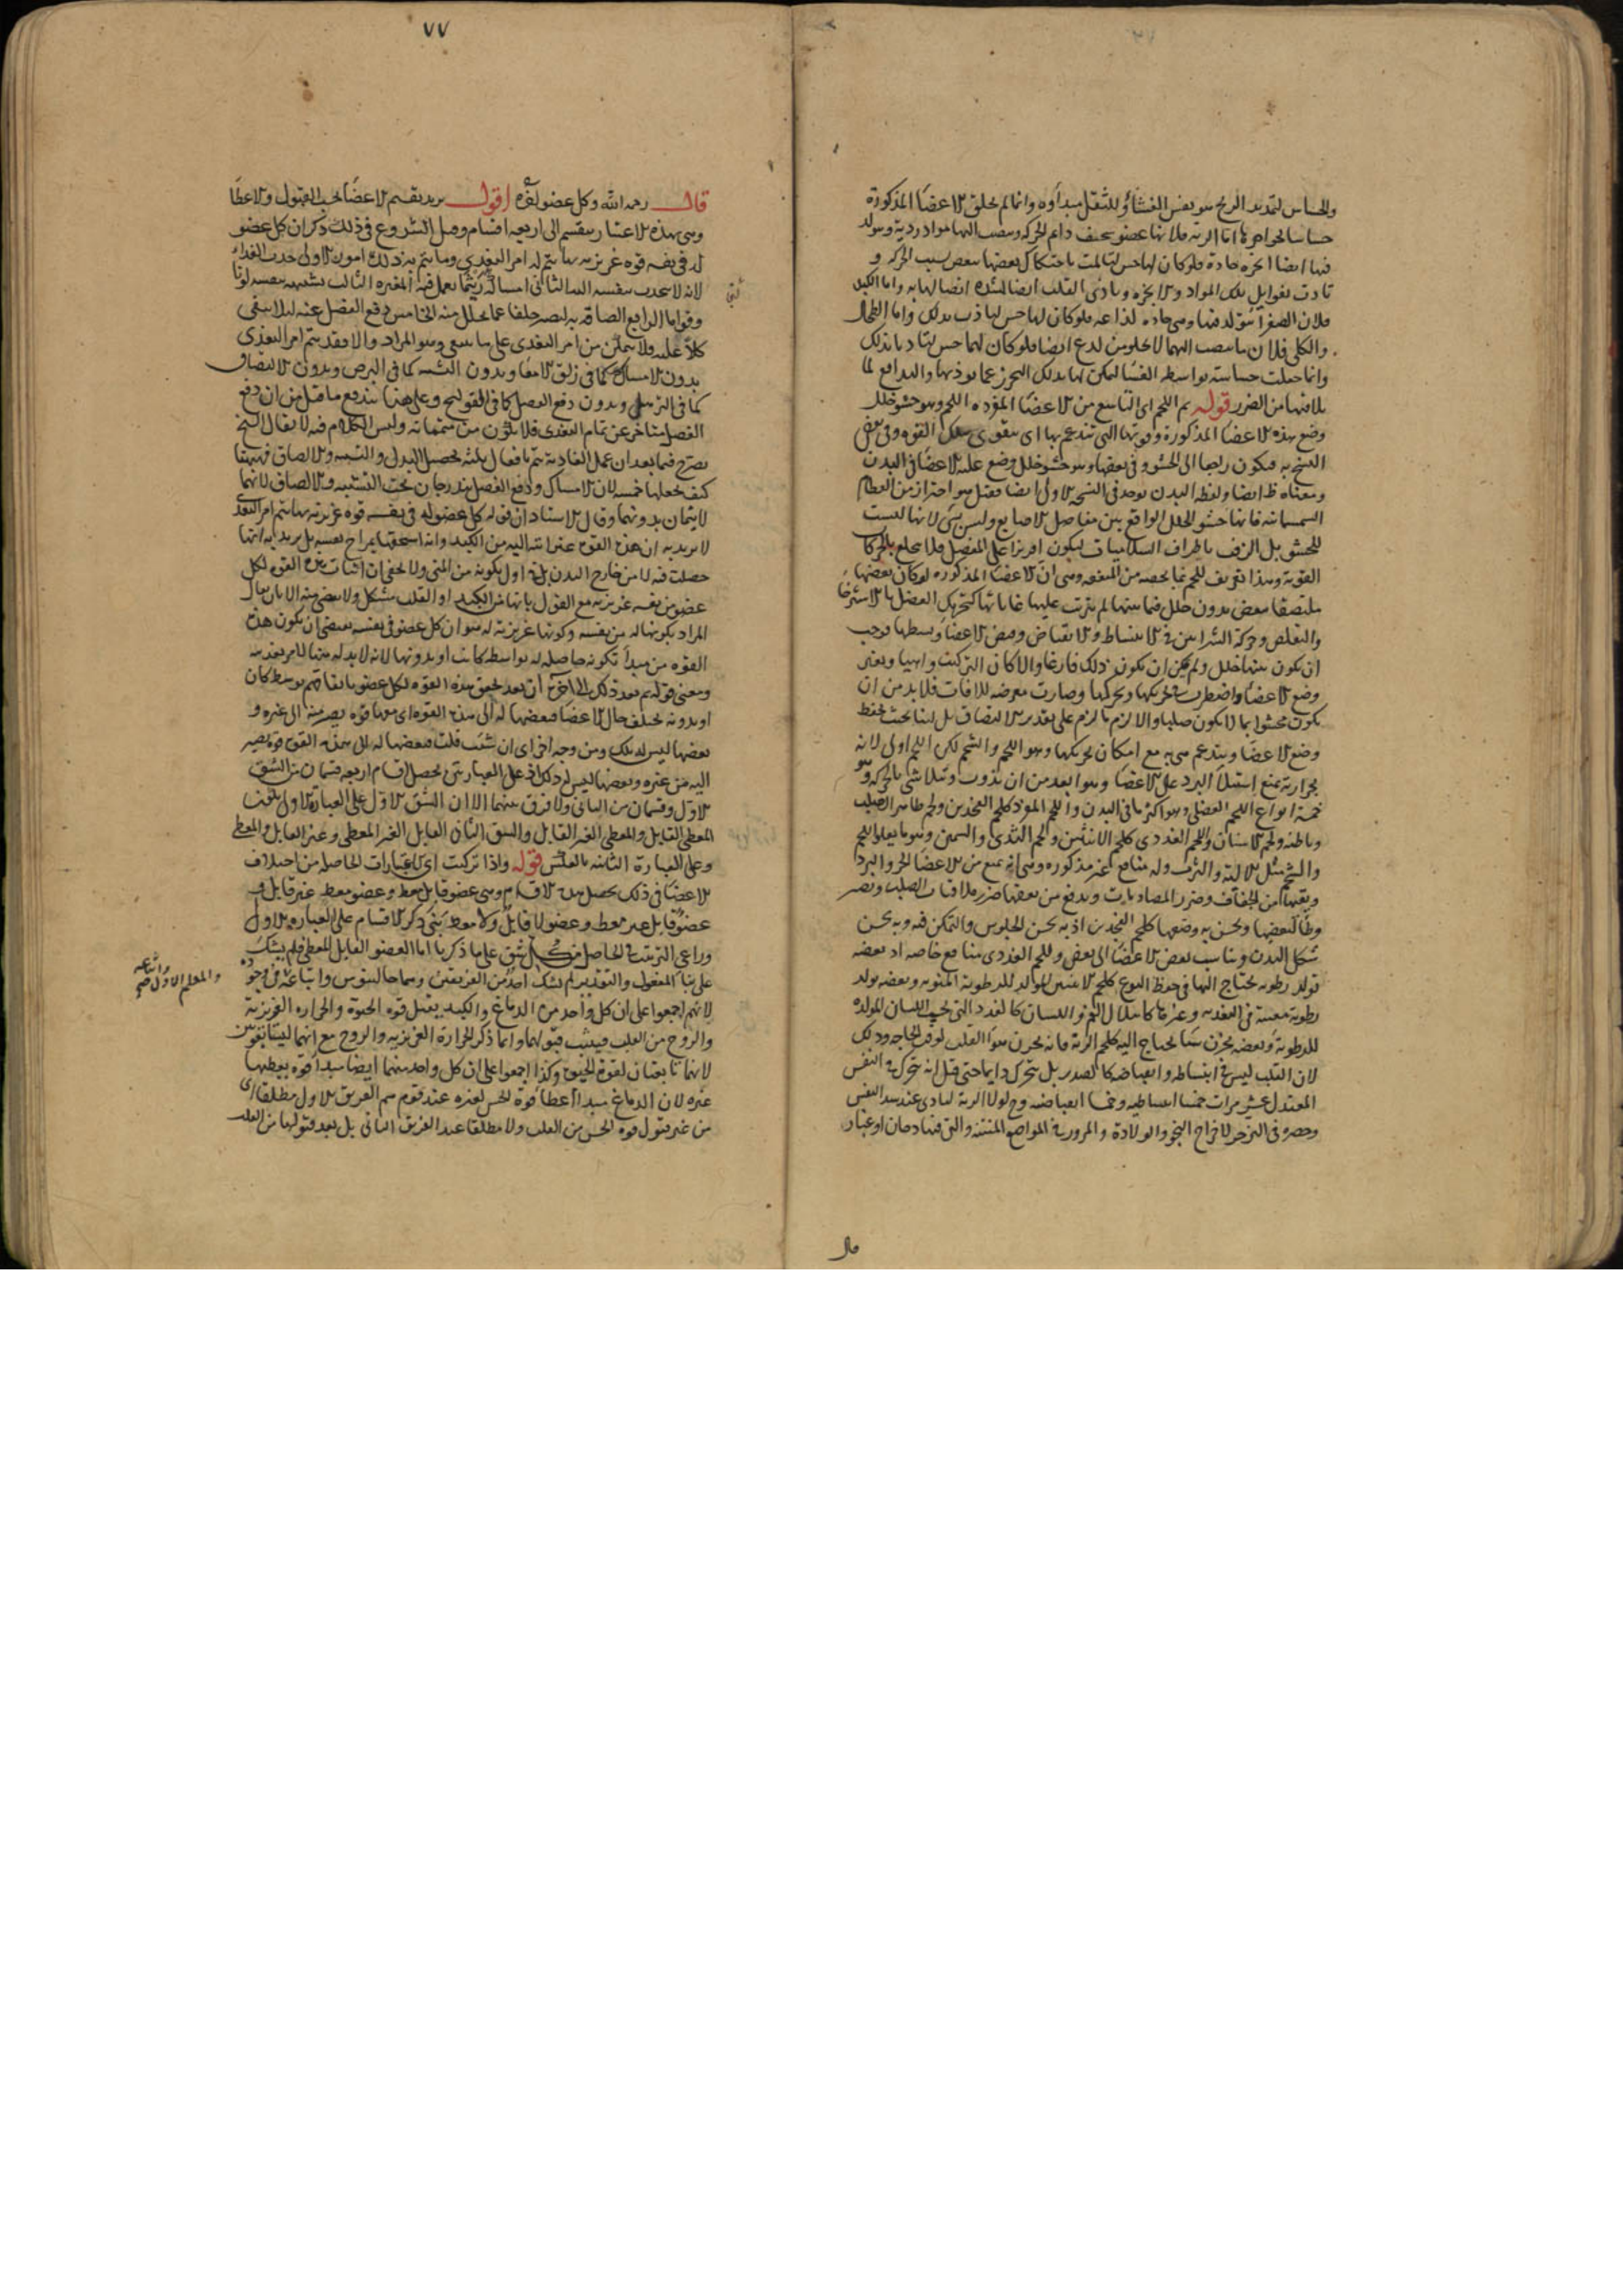 والحساس لتمدد الريح هو نفس الغشاء وللثقل مبدأوه وانما لم يخلق الاعضا المذكورة
حساسا لجواهرها اما الرية فلانها عضو دايم الحركة وينصب اليها مواد ردية ويتولد
فيها ايضا ابخرة حادة فلو كان لها حس لتالمت باحتكاك بعضها ببعض بسبب الحركة و
تلك المواد والابخرة القلب ايضا لشدة اتصالها به واما الكبد
فلان الصفرا يتولد فيها وهي حادة لذاعة فلو كان لها حس بذلك واما الطحال
والكلى فلان ما ينصب اليهما لا يخلو من لدع ايضا فلو كان لهما حس بذلك
وانما جعلت حساسة بواسطة الغشا ليمكن لها بذلك التحرز عما يوذيها والتدافع لما
يلاقيها من الضرر قوله ثم اللحم اى التاسع من الاعضا المفرده اللحم وهو حشو خلل
وضع هذه الاعضا المذكورة وقوتها التي تدعم بها اى يتقوى تلك القوة وفي بعض
النسخ به فيكون راجعا الى الحشو وفي بعضها وهو حشو خلل وضع علية الاعضا في البدن
ومعناه ظ ايضا ولفظه البدن يوجد في النسخه الاولى ايضا فقيل هو احتراز من العظام
السمسمانية فانها حشو الخلل الواقع بين مفاصل الاصابع وليس بشى لانها ليست
للحشو بل باطراف السلاميات ليكون على المفصل فلا بالحركات
القوية وهذا تعريف للحم بما يخصه من المنفعه وهي ان الاعضا المذكوره لو كان بعضها
ملتصقا ببعض بدون خلل فيما بينها لم يترتب عليها غاياتها كتحريك العضل بالاسترخا
والتقلص وحركة الشراين في الانبساط والانقباض الاعضا وبسطها فوجب
ان يكون بينها خلل ولم يمكن ان يكون ذلك فارغا والا كان التركيب واهيا ويغير
وضع الاعضا واضطرب تحريكها وتحركها وصارت معرضه للافات فلا بد من ان
يكون محشوا بما لا يكون صلبا والا لزم ما لزم على تقدير الالتصاق بل لينا بحيث يحفظ
وضع الاعضا ويتدعم هي به مع امكان تحريكها وهو اللحم والشحم لكن اللحم اولى لانه
بحرارته يمنع استيلا البرد على الاعضا وهو ابعد من ان يذوب ويتلاشى بالحركة وهو
خمسة انواع اللحم العضلي وهو اكثر ما في البدن واللحم المفرد كلحم الفخذين ولحم ظاهر الصلب
وباطنه ولحم الاسنان واللحم الغددى كلحم الانثيين ولحم الثدى والسمين وهو ما يعلو اللحم
والشحم مثل الالية والثرب وله منافع غير مذكوره وهي انه يمنع من الاعضا الحر والبرد
ويقيها من الجفاف وضرر المصادمات ويدفع من بعضها ضرر ملاقات الصلب ويصير
وطا لبعضها ويحسن به وضعها كلحم الفخذين اذ به يحسن الجلوس والتمكن فيه وبه يحسن
شكل البدن ويناسب بعض الاعضا الى بعض وللحم الغددى منافع خاصه اذ بعضه
تولد رطوبه يحتاج اليها في حفظ النوع كلحم الانثيين المولد للرطوبة المنويه وبعضه يولد
رطوبة معينة في التغذيه وغيرها كابتلال الفم واللسان كالغدد التي تحت اللسان المولدة
للرطوبة وبعضه يخزن شيا يحتاج اليه كلحم الرية فانه يخزن هواء القلب لوقت الحاجه وذلك
لان القلب ليس في انبساطه وانقباضه كالصدر بل يتحرك دايما حتى قيل انه يتحرك في النفس
المعتدل عشر مرات خمسا انبساطيه وخمسا انقباضيه وح لولا الرية عند سد النفس
وحصره في التزحر لاخراج النجو والولادة والمرور في المواضع المنتنه والتي فيها دخان او غبار
قال
٧٧
قال رحمه الله وكل عضو له قوة اقول يريد تقسيم الاعضا بحسب القبول والاعطا
وهي بهذه الاعتبار ينقسم الى اربعه اقسام وقبل الشروع في ذلك ذكر ان كل عضو
له في نفسه قوه غريزيه بها يتم له امر التغذى وما يتم به ذلك امور الاولى جذب الغذاء
لانه لا يجذب بنفسه اليه الثاني امساكه ريثما يعمل فيه المغيره الثالث تشبيهه بنفسه لونا
وقواما الرابع الصاقه به ليصير خلفا عما تحلل منه الخامس دفع الفضل عنه ليلا يبقى
كلا عليه ولا يتمكن من امر التغذى على ما ينبغى وهو المراد والا فقد يتم امر التغذى
بدون الامساك كما في زلق الامعا وبدون التشبيه كما في البرص وبدون الالتصاق
كما في الترهل وبدون دفع الفضل كما في القولنج وعلى هذا يندفع ما قيل من ان دفع
الفضل متاخر عن تمام التغذى فلا يكون من متمماته وليس الكلام فيه لا يقال الشيخ
يصرح فيما بعد ان عمل الغاذية يتم بافعال ثلثه تحصيل البدل والتشبيه والالصاق فههنا
كيف يجعلها خمسه لان الامساك ودفع الفضل يندرجان تحت التشبيه والالصاق لانهما
لا يتمان بدونهما وقال الاستاد ان قوله كل عضو له في نفسه قوة غريزيه بها يتم امر التغذ
لا يريد به ان هذه القوه غير اتيه اليه من الكبد وانه استحقها بمزاج نفسه بل يريد به انها
حصلت فيه لا من خارج البدن بل في اول تكونه من المنى ولا يخفى ان اثبات هذه القوه لكل
عضو من نفسه غريزيه مع القول بانها من الكبد او القلب مشكل ولا مخلص منه الا بان يقال
المراد بكونها له من نفسه وكونها غريزية له هو ان كل عضو في نفسه يقتضى ان يكون هذه
القوه من مبدا تكونه حاصله له بواسطه كانت او بدونها لانه لا بد له منها لامر تغذيه
ومعنى قوله ثم بعد ذلك الى اخره ان بعد تحقق هذه القوه لكل عضو باتفاقهم بوسط كان
او بدونه يختلف حال الاعضا فبعضها له الى هذه القوه اى معها قوه يصير منه الى غيره و
بعضها ليس له تلك ومن وجه اخر اى ان شئت قلت فبعضها له الى هذه القوه قوه يصير
اليه من غيره وبعضها ليس له ذلك فعلى العبارتين يحصل اقسام اربعه قسمان من الشق
الاول وقسمان من الثاني ولا فرق بينهما الا ان الشق الاول على العبارة الاولى
المعطى القابل والمعطى الغير القابل والشق الثاني القابل الغير المعطى وغير القابل والمعطى
وعلى العبارة الثانيه بالعكس قوله واذا تركبت اى الاعتبارات الحاصله من اختلاف
الاعضا في ذلك يحصل هذه الاقسام وهي عضو قابل معط وعضو معط غير قابل و
عضو قابل غير معط وعضو لا قابل ولا معط بنى ذكر الاقسام على العباره الاولى
وراعى الترتيب في الحاصل من كل شق على ما ذكرنا اما العضو القابل المعطى فلم يشك
على بنا المفعول والتقدير لم يشك احد من الفريقين وهما جالينوس واتباعه في وجوده
لانهم اجمعوا على ان كل واحد من الدماغ والكبد يقبل قوه الحيوة والحراره الغريزية
والروح من القلب فيثبت قبولهما وانما ذكر الحرارة الغريزيه والروح مع انهما ليستا بقوتين
لانهما تابعتان لقوة الحيوة وكذا اجمعوا على ان كل واحد منهما ايضا مبدا قوة يعطيها
غيره لان الدماغ مبدا اعطا قوة الحس لغيره عند قوم هم الفريق الاول مطلقا اى
من غير قبول قوه الحس من القلب ولا مطلقا عند الفريق الثاني بل بعد قبولها من القلب
والمعلم الاول واتباعه صح